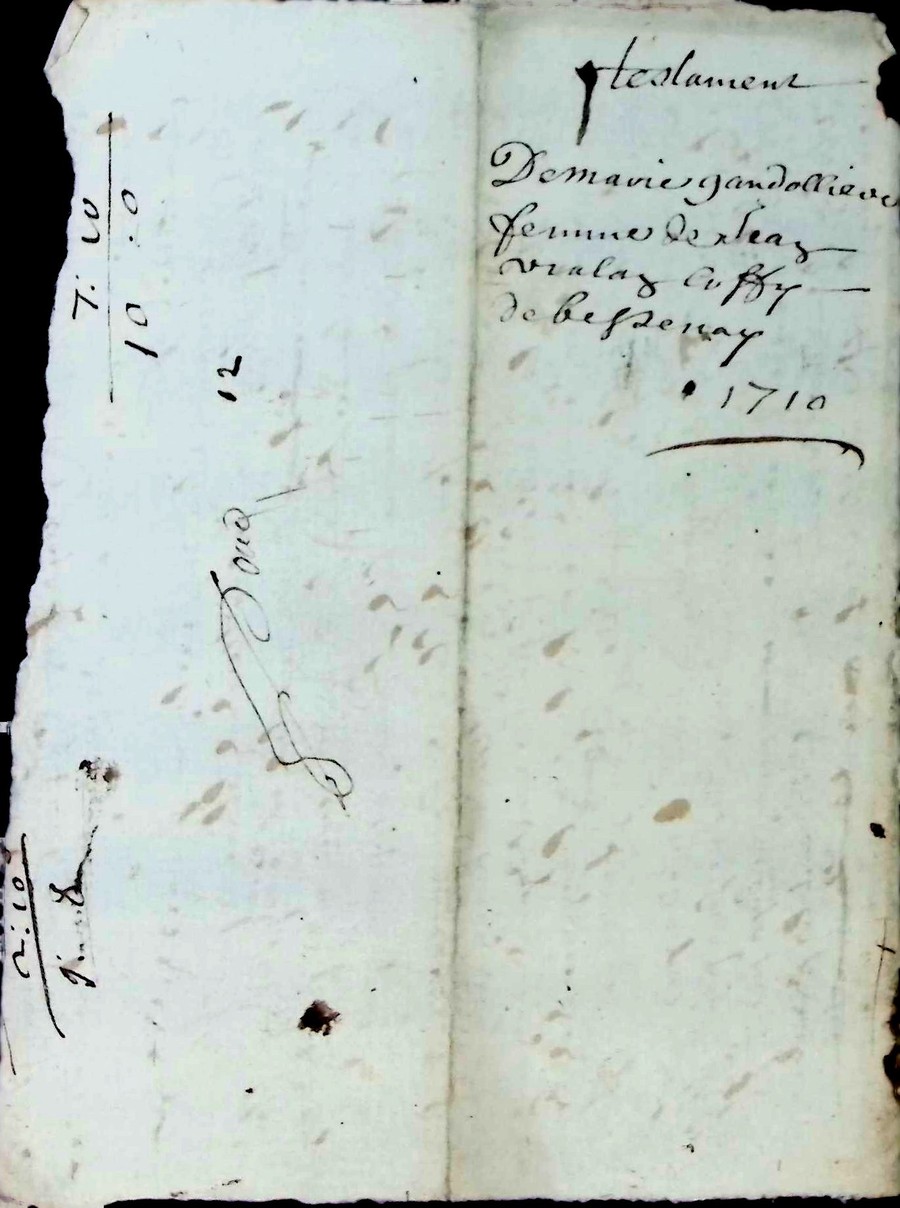 testament
De marie gandolliere
femme de Jean
vialay coffy
de bessenay
1710
7: 10
10 : 0
12
2: 10